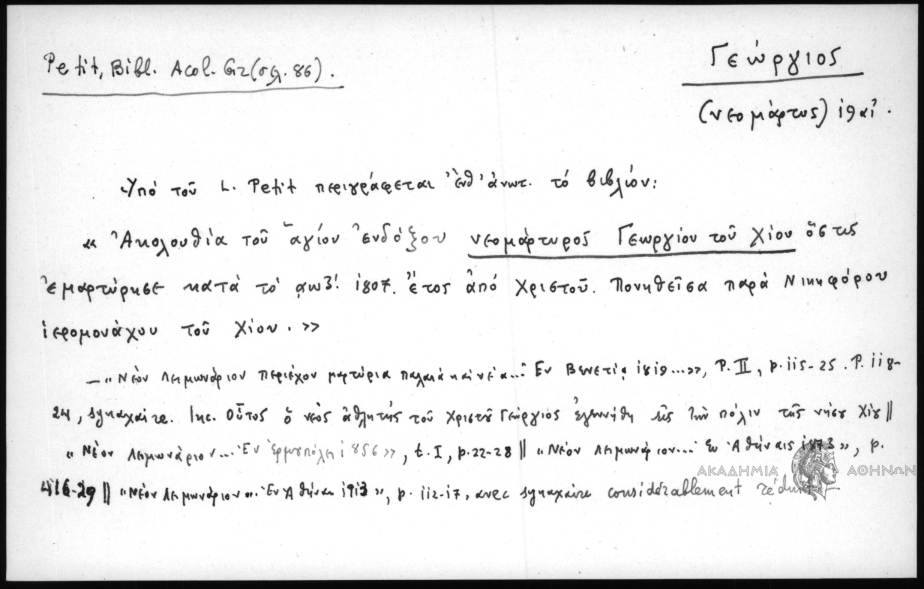 Petit, Bibl. Acol. Gr (σελ. 86).
Γεώργιος
(νεομάρτυς) ιθ αἰ.
Ὑπό τοῦ L. Petit περιγράφεται ἐνθ' ἀνωτ. τό βιβλίον:
« Ἀκολουθία τοῦ ἁγίου ἐνδόξου νεομάρτυρος Γεωργίου τοῦ Χίου ὅστις
ἐμαρτύρησε κατά τό ͵αωζ! 1807. ἔτος ἀπό Χριστοῦ. Πονηθεῖσα παρά Νικηφόρου
ἱερομονάχου τοῦ Χίου. »
— "Νέον Λειμωνάριον περιέχον μαρτύρια παλαιά καί νέα... Ἐν Βενετίᾳ 1819...», P. II, p. 115-25. P. 118-
24, synaxaire. Inc. Οὗτος ὁ νέος ἀθλητής τοῦ Χριστοῦ Γεώργιος ἐγεννήθη εἰς τήν πόλιν τῆς νήσου Χίου ||
"Νέον Λειμωνάριον... Ἐν Ἑρμουπόλει 1856», t. I, p. 22-28 || "Νέον Λειμωνάριον... Ἐν Ἀθήναις 1873», p.
416-29 || "Νέον Λειμωνάριον... Ἐν Ἀθήναις 1913», p. 112-17, avec synaxaire considérablement réduit.
ΑΚΑΔΗΜΙΑ ΑΘΗΝΩΝ